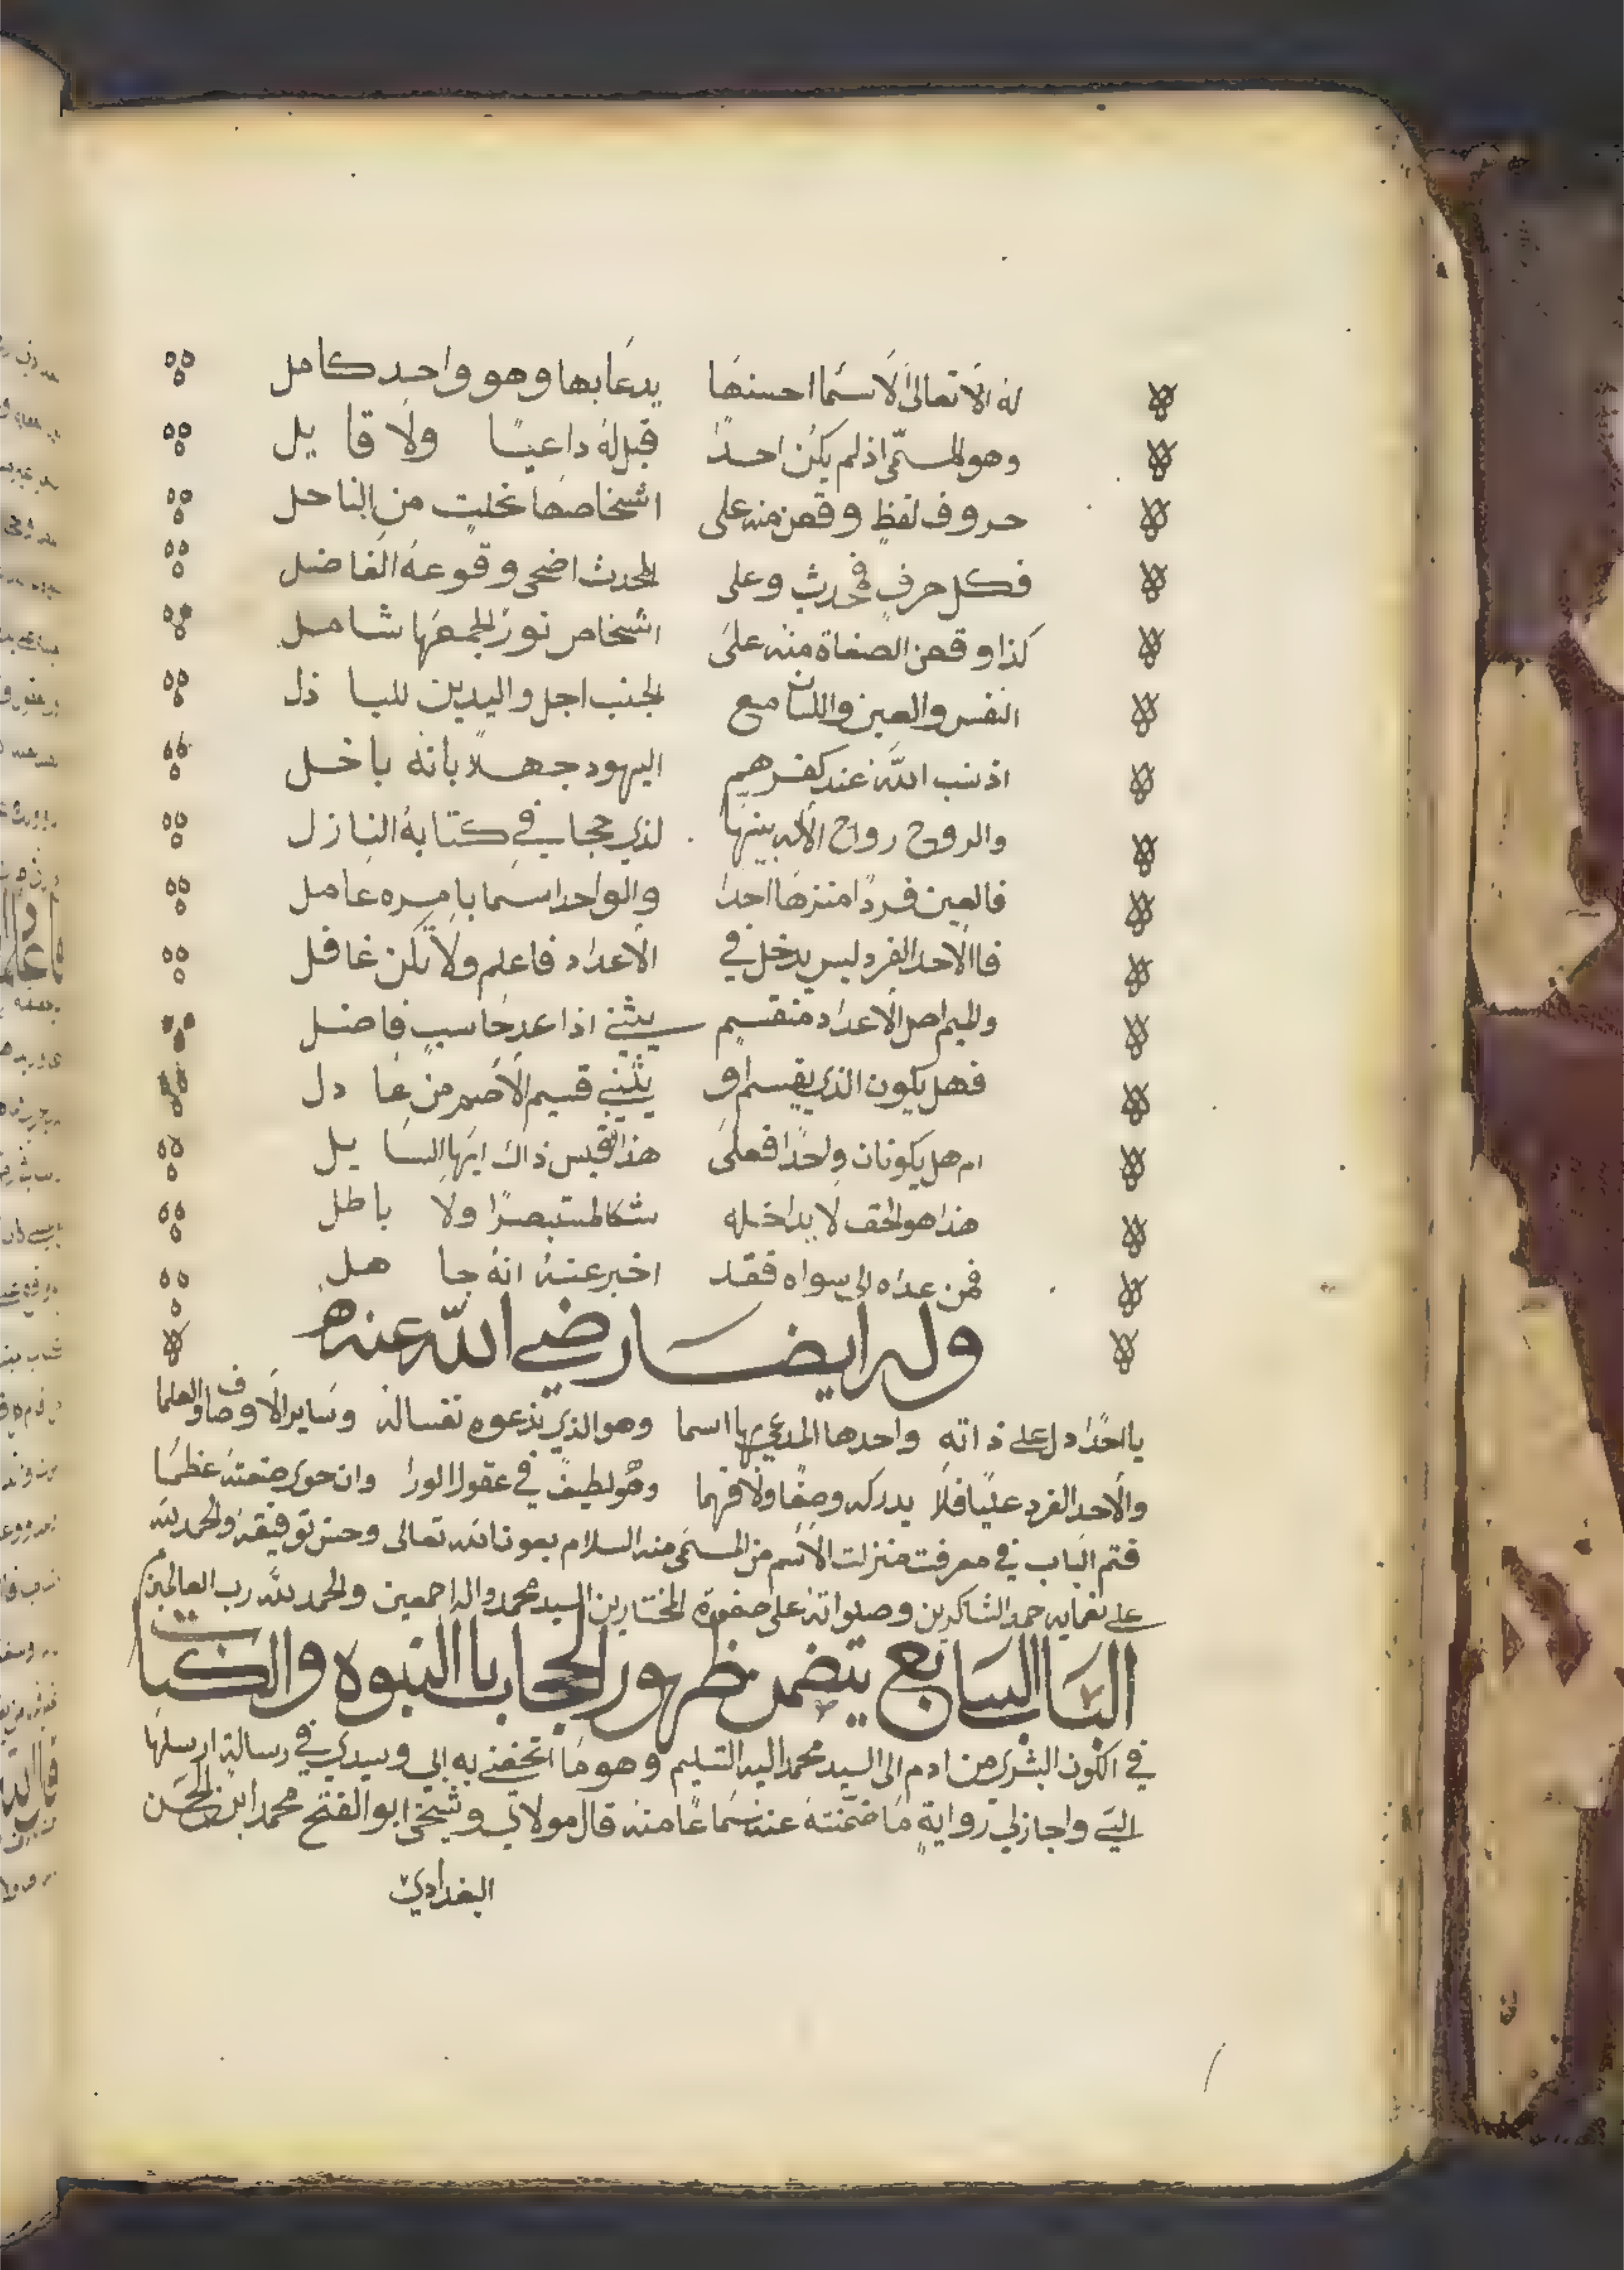 له الاتعالى الاسما احسنها يدعا بها وهو واحد كامل
وهو المسمّى اذ لم يكن احدًا قبل له داعيًا ولا قايل
حروف لفظٍ وقعن منه على اشخاصها نحلت من الناحل
فكل حرفٍ محدث وعلى المحدث اضحى وقوعه الفاضل
كذا وقعن الصفاة منه على اشخاص نور لجمعها شامل
النفس والعين واللسان مع الجنب اجل واليدين للباذل
اذ نسب الله عند كفرهم اليهود جهلا بانه باخل
والروح رواح الاله بينها لذي حجاب في كتابه النازل
فالعين فردًا منزها احدا والواحد اسما بامره عامل
فاالاحد الفرد ليس يدخل في الاعداد فاعلم ولا تكن غافل
والميم اصل الاعداد منقسم يثني اذا عد حاسبٍ فاضل
فهل يكون الذي يقسم او يثني قسيم الاصم من عادل
ام هل يكونان واحدًا فعلى هذا فقس ذاك ايها السايل
هذا هو الحق لا يداخله شكا لمستبصرًا ولا باطل
فمن عداه الى سواه فقد اخبر عنه انه جاهل
وله ايضا رضي الله عنه
يا احدًا دل على ذاته واحدها المدعي بها اسما وهو الذي تدعوه نفسا له وساير الاوصاف والعلما
والاحد الفرد عليًا فلا يدركه وصفًا ولا فهما وهو لطيفً في عقول الورا وان حوى صنعته عظمًا
فتم الباب في معرفت منزلت الاسم من المسمى منه السلام بعونالله تعالى وحسن توفيقه والحمدلله
على نعمايه حمد الشاكرين وصلواته على صفوة المختارين السيد محمد واله اجمعين والحمد لله رب العالمين
الباب السابع يتضمن ظهور الحجاب باالنبوه والكتاب
في الكون البشري من ادم الى السيد محمد اليه التسليم وهو ما اتحفني به ابي وسيدي في رسالة ارسلها
الي واجازلي روايةٍ ما ضمّنته عنه سماعًا منه قال مولاي وشيخي ابو الفتح محمد ابن الحسن
البغدادي